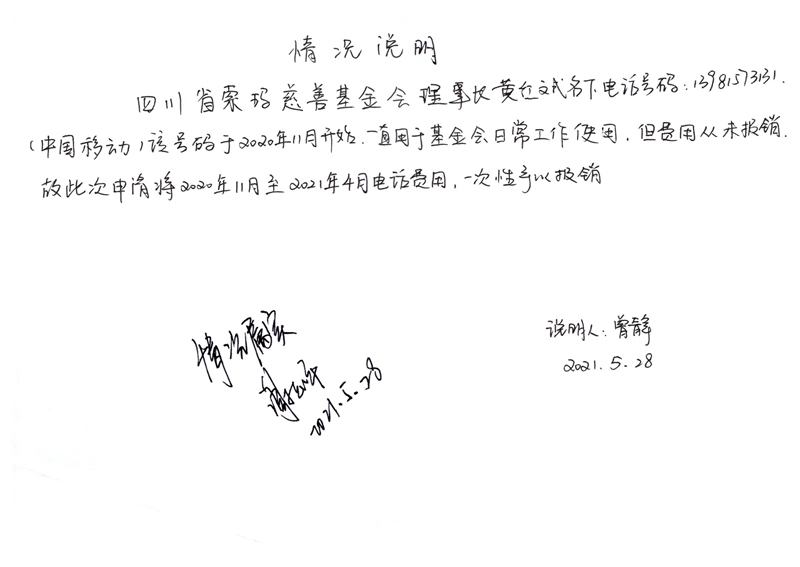 情况说明
四川省索玛慈善基金会理事长黄红斌名下电话号码:13981573131.
(中国移动)该号码于2020年11月开始.一直用于基金会日常工作使用.但费用从未报销.
故此次申请将2020年11月至2021年4月电话费用,一次性予以报销
说明人:曾静
2021.5.28
情况属实
2021.5.28